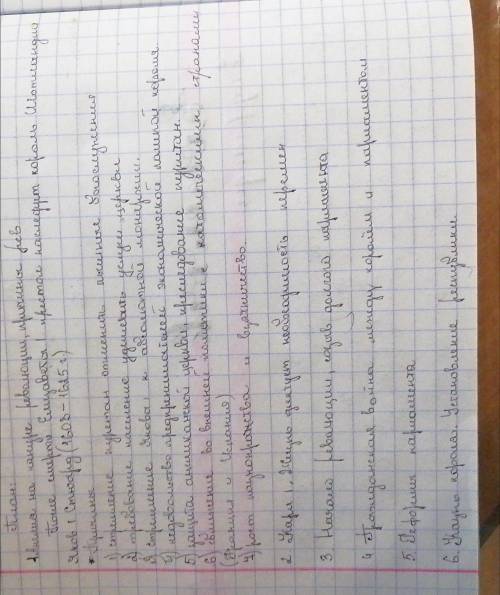 План:
1. Англия на кануне революции, правления рев
После смерти Елизаветы I престол наследует король Шотландии
Яков I Стюард (1603-1625 г.)
* Причины
1) стремление пуритан отменить пышные богослужения
2) требование населения удешевить услуги церкви
3) стремление Якова I к абсолютной монархии.
4) недовольство предпринимателей экономической политикой короля.
5) защита англиканской церкви, преследование пуритан.
6) сближение во внешней политики с католическими странами
(Франция и Испания)
7) рост мздоимства и взяточничества
2 Карл I. Жизнь диктует необходимость перемен
3 Начало революции созыв долгого парламента
4 Гражданская война между королём и парламентом
5 Реформы парламента
6. Казнь короля. Установление республики.